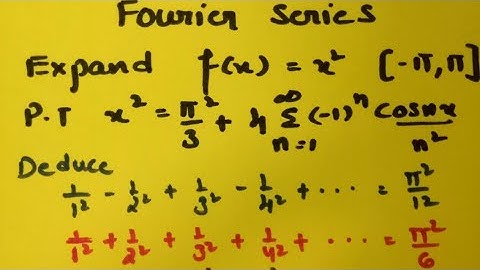 Fourier Series
Expand f(x) = x² [-π, π]
P.T x² = π²/3 + 4 ∞Σn=1 (-1)ⁿ cosnx/n²
Deduce
1/1² - 1/2² + 1/3² - 1/4² + ··· = π²/12
1/1² + 1/2² + 1/3² + 1/4² + ··· = π²/6